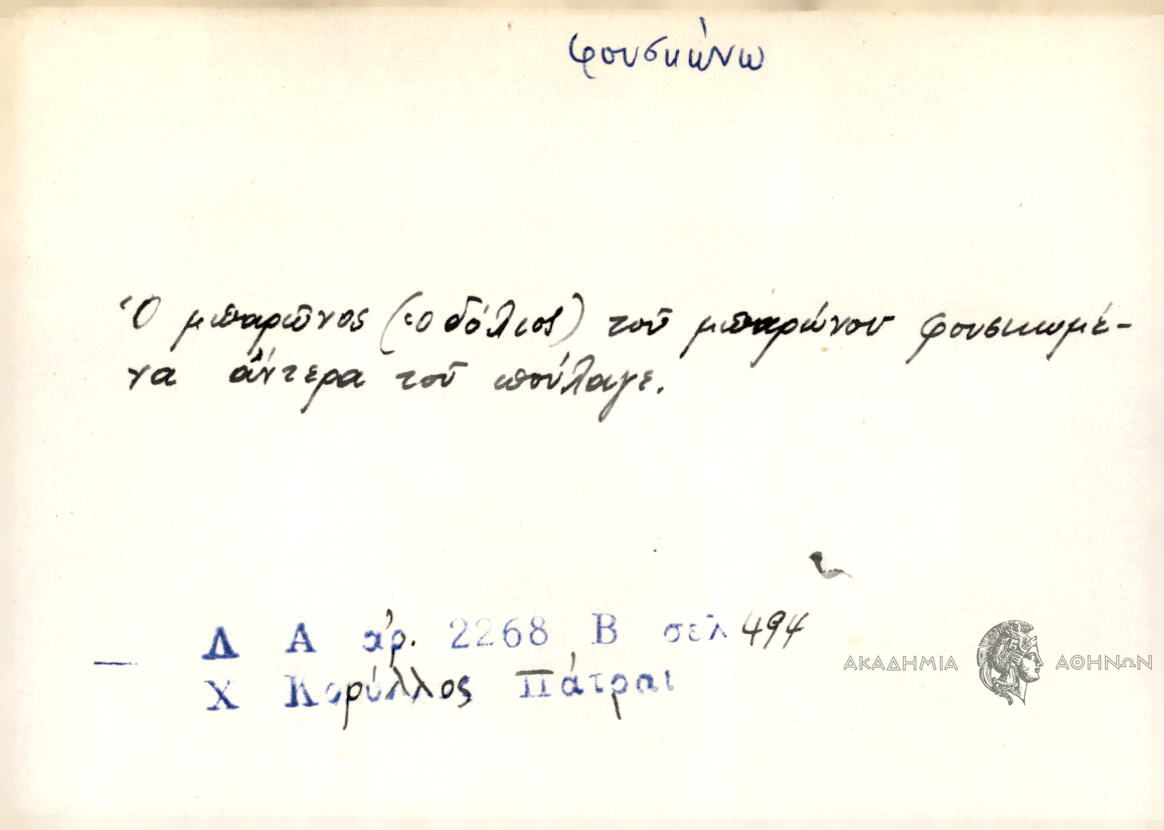 φουσκώνω
Ὁ μπαρῶνος (ὁ δόλιος) τοῦ μπαρώνου φουσκωμέ-
να ἄντερα τοῦ πούλαγε.
Δ Α ἀρ. 2268 Β σελ 494
Χ Κορύλλος Πάτραι
ΑΚΑΔΗΜΙΑ ΑΘΗΝΩΝ